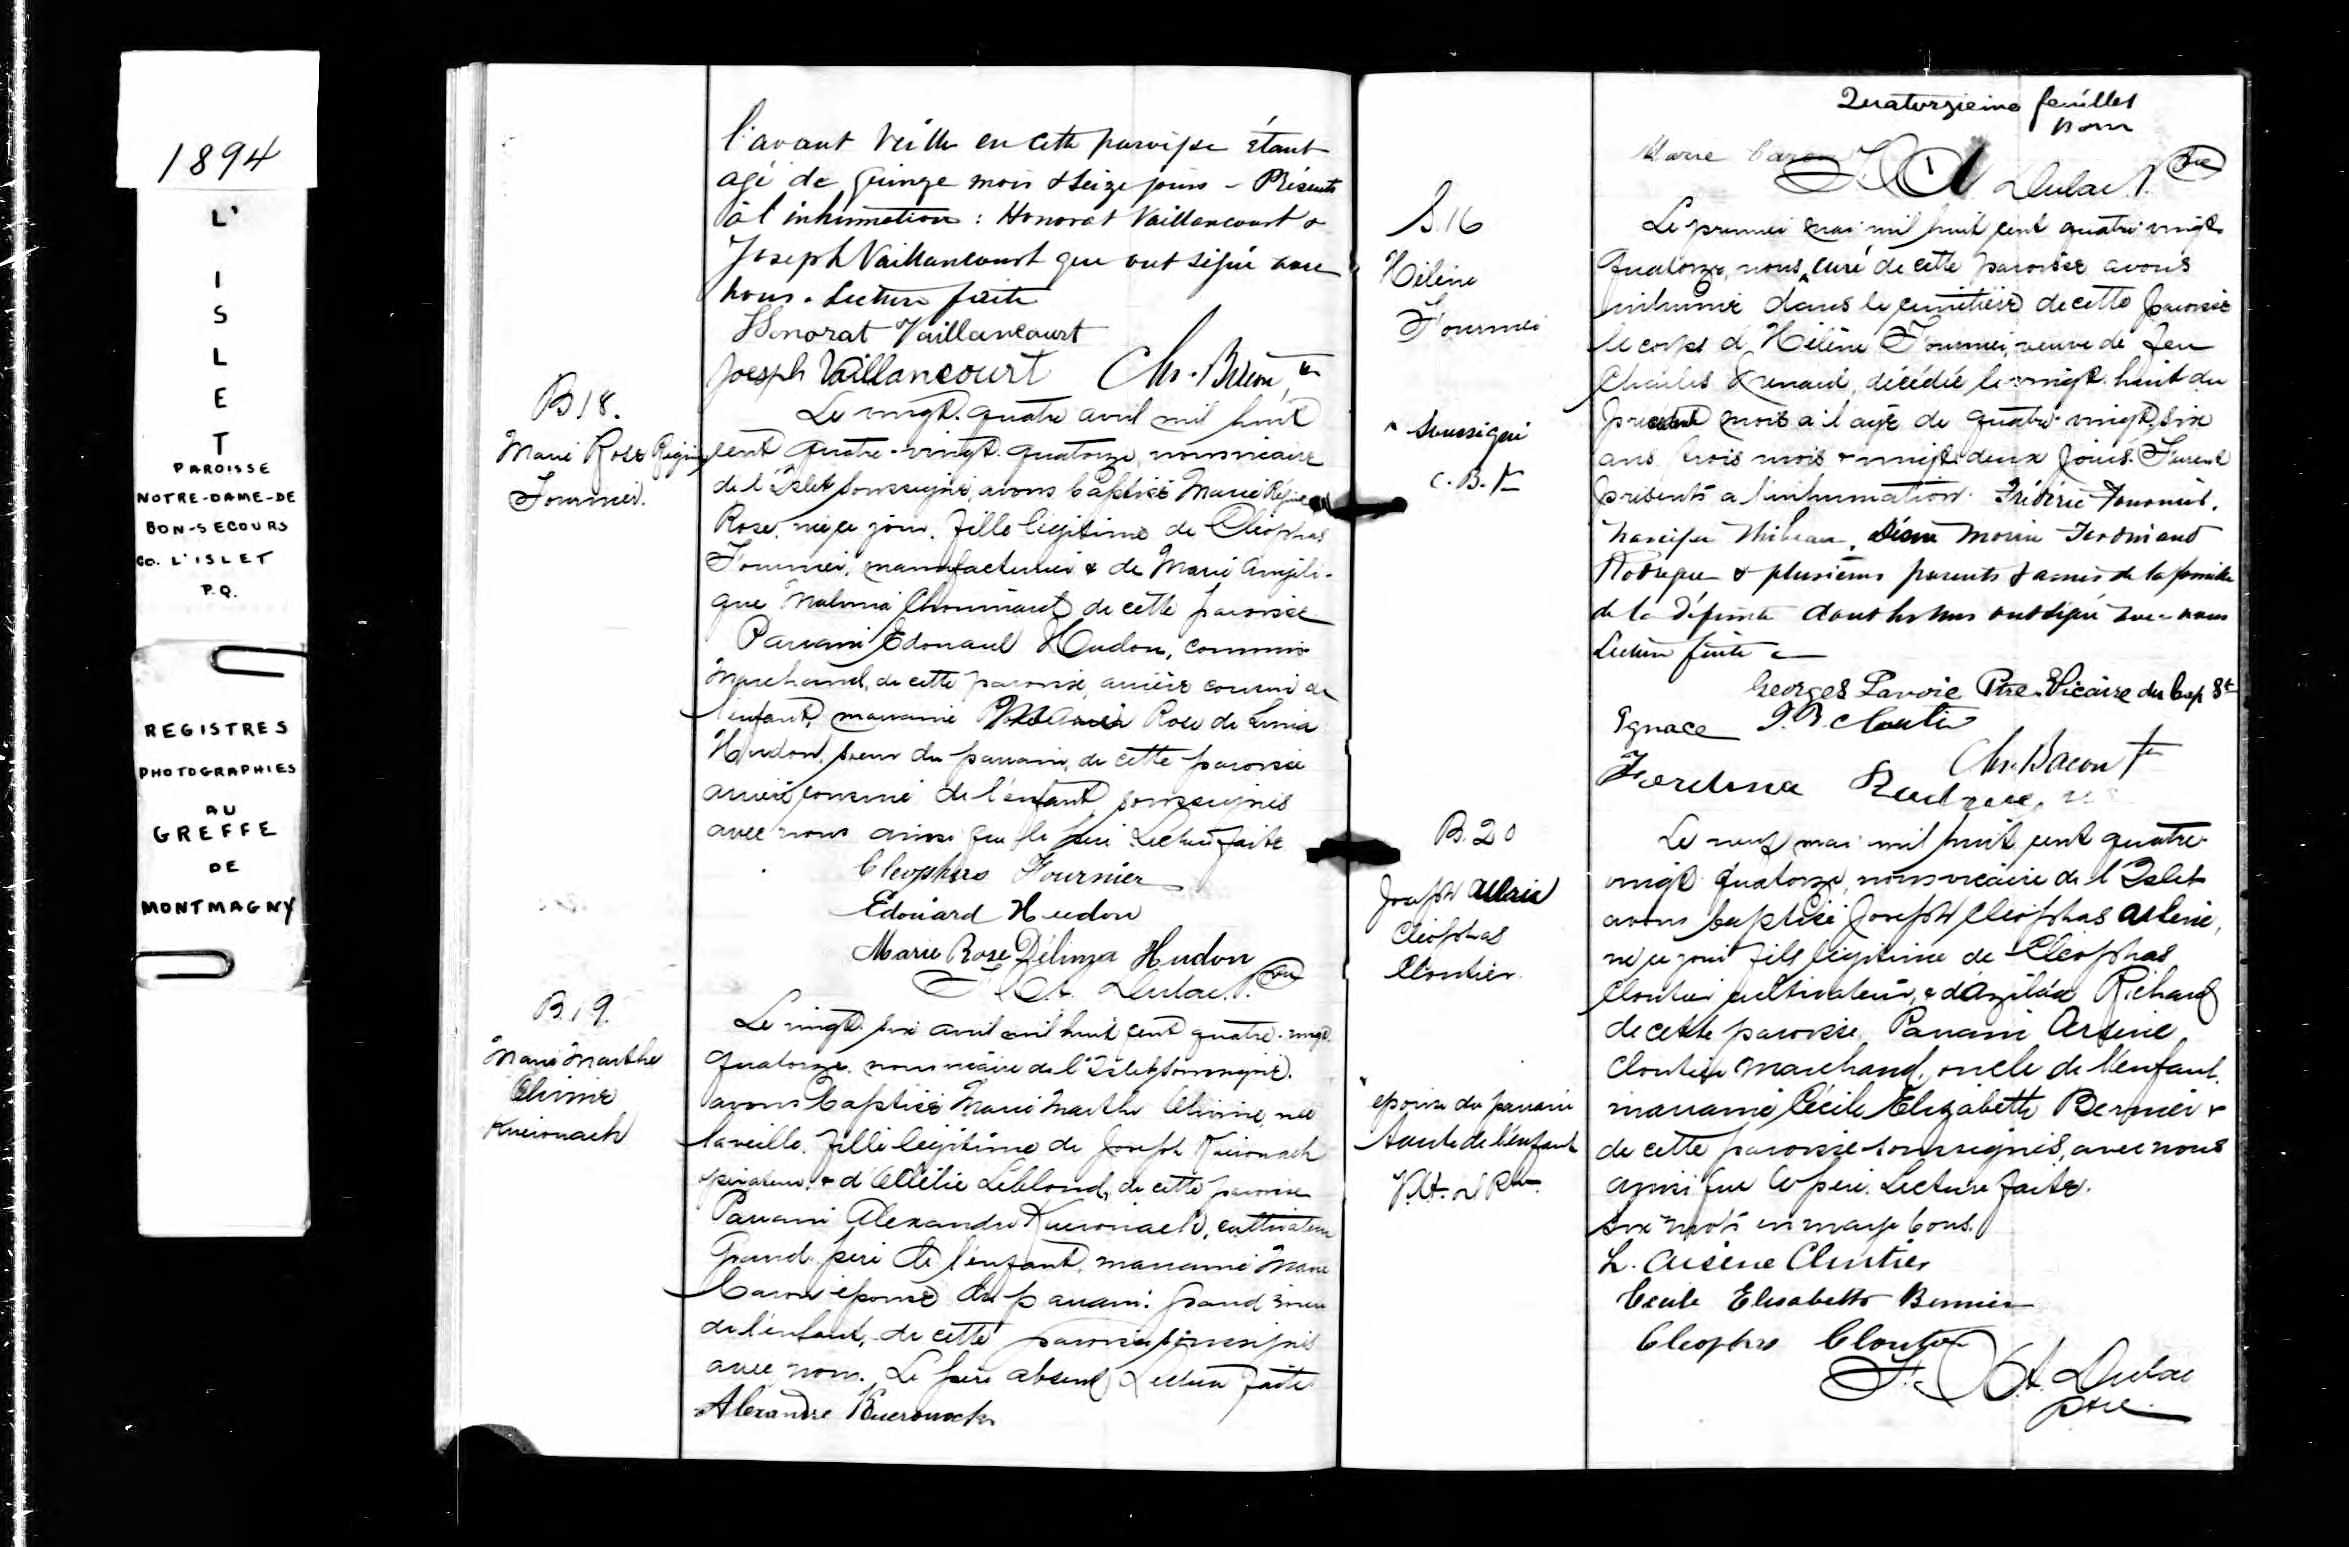 1894
L'
I
S
L
E
T
PAROISSE
NOTRE-DAME-DE
BON-SECOURS
Co. L'ISLET
P.Q.
REGISTRES
PHOTOGRAPHIES
AU
GREFFE
DE
MONTMAGNY
l'avant veille en cette paroisse étant
agé de quinze mois & seize jours - Présents
à l'inhumation : Honorat Vaillancourt &
Joseph Vaillancourt qui ont signé avec
nous. Lecture faite
Honorat Vaillancourt
Joseph Vaillancourt Chs. Bacon
B 18.
Marie Rose Régina
Fournier.
Le vingt-quatre avril mil huit
cent quatre-vingt-quatorze, nous vicaire
de l'Islet soussigné, avons baptisé Marie
Rose, née ce jour, fille légitime de Cléophas
Fournier, manufacturier & de Marie Angéli-
que Chouinard de cette paroisse
Parrain Edouard Hudon, commis
Marchand, de cette paroisse, arrière cousin de
l'enfant, marraine Rose de
Hudon, soeur du parrain, de cette paroisse
arrière cousine de l'enfant, soussignés
avec nous ainsi que le père. Lecture faite
Cleophas Fournier
Edouard Hudon
Marie Rose Délinza Hudon
Dulac
B.19.
Marie Marthe
Olivine
Kueronack
Le vingt-six avril mil huit cent quatre-vingt
quatorze, nous vicaire de l'Islet soussigné.
avons baptisé Marie Marthe Olivine, née
la veille, fille légitime de Joseph
& d' Leblond, de cette paroisse
Parrain Alexandre, cultivateur
Grand-père de l'enfant, marraine Marie
Caron épouse du parrain. Grand'mère
de l'enfant, de cette paroisse soussignés
avec nous. Le père absent Lecture faite
Alexandre
Quatorzieme feuillet
Marie Caron
Dulac
S.16
Hélène
Fournier
Le premier mai mil huit cent quatre-vingt
Quatorze, nous ^ curé de cette paroisse avons
inhumé dans le cimetière de cette paroisse
le corps d'Hélène Fournier, veuve de feu
Charles, décédée le vingt-huit du
précédent mois a l'age de quatre-vingt-six
ans trois mois & vingt-deux jours. Furent
présents a l'inhumation. Frédéric Fournier,
Narcisse Thibeau, Morin Ferdinand
Rodrigue & plusieurs parents & amis de la famille
de la défunte dont les uns ont signé avec nous
Lecture faite
^ Soussigné
C.B.
Georges Lavoie Ptre. Vicaire du Cap St
Ignace J.B. Cloutier
Chs. Bacon
B.20
Joseph
Cléophas
Cloutier.
Le neuf mai mil huit cent quatre-
vingt-quatorze, nous vicaire de l'Islet
avons baptisé Joseph Cléophas Arsène,
né ce jour fils légitime de Cléophas
Cloutier cultivateur, & d'Azilda Richard
de cette paroisse. Parrain Arsène
Cloutier marchand, oncle de l'enfant.
marraine Cécile Elizabeth Bernier +
de cette paroisse soussignés, avec nous
ainsi que le père. Lecture faite.
six mots en marge bons.
épouse du parrain
tante de l'enfant
L. Arsène Cloutier
Cecile Elisabeth Bernier
Cleophas Cloutier
Dulac
ptre.